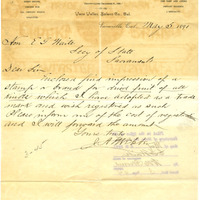 Vaca Valley
Vacaville, Cal., May 25 1891
Hon. E. G. Waite
Secy of State
Sacramento
Dear Sir
Enclosed find impression of a
stamp & brand for dried fruit of all
kinds which I have adopted as a trade
mark and wish registered as such
Please inform me of the cost of registration
and I will forward the amount.
Yours truly